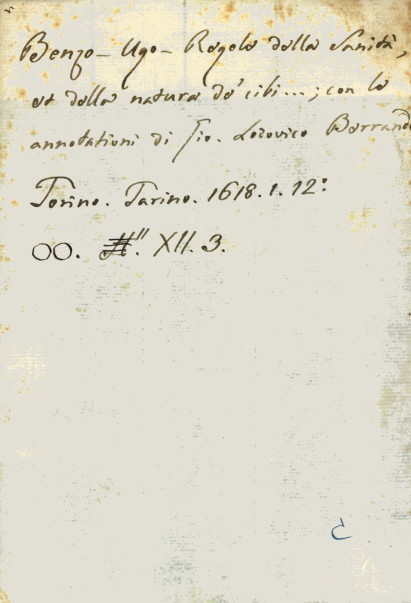 Benzo - Ugo - Regole della Sanità,
et della natura de' cibi...; con le
annotationi di Gio. Lodovico Bertrand
Torino. Tarino. 1618. 1. 12:
OO. H". XII. 3.
C